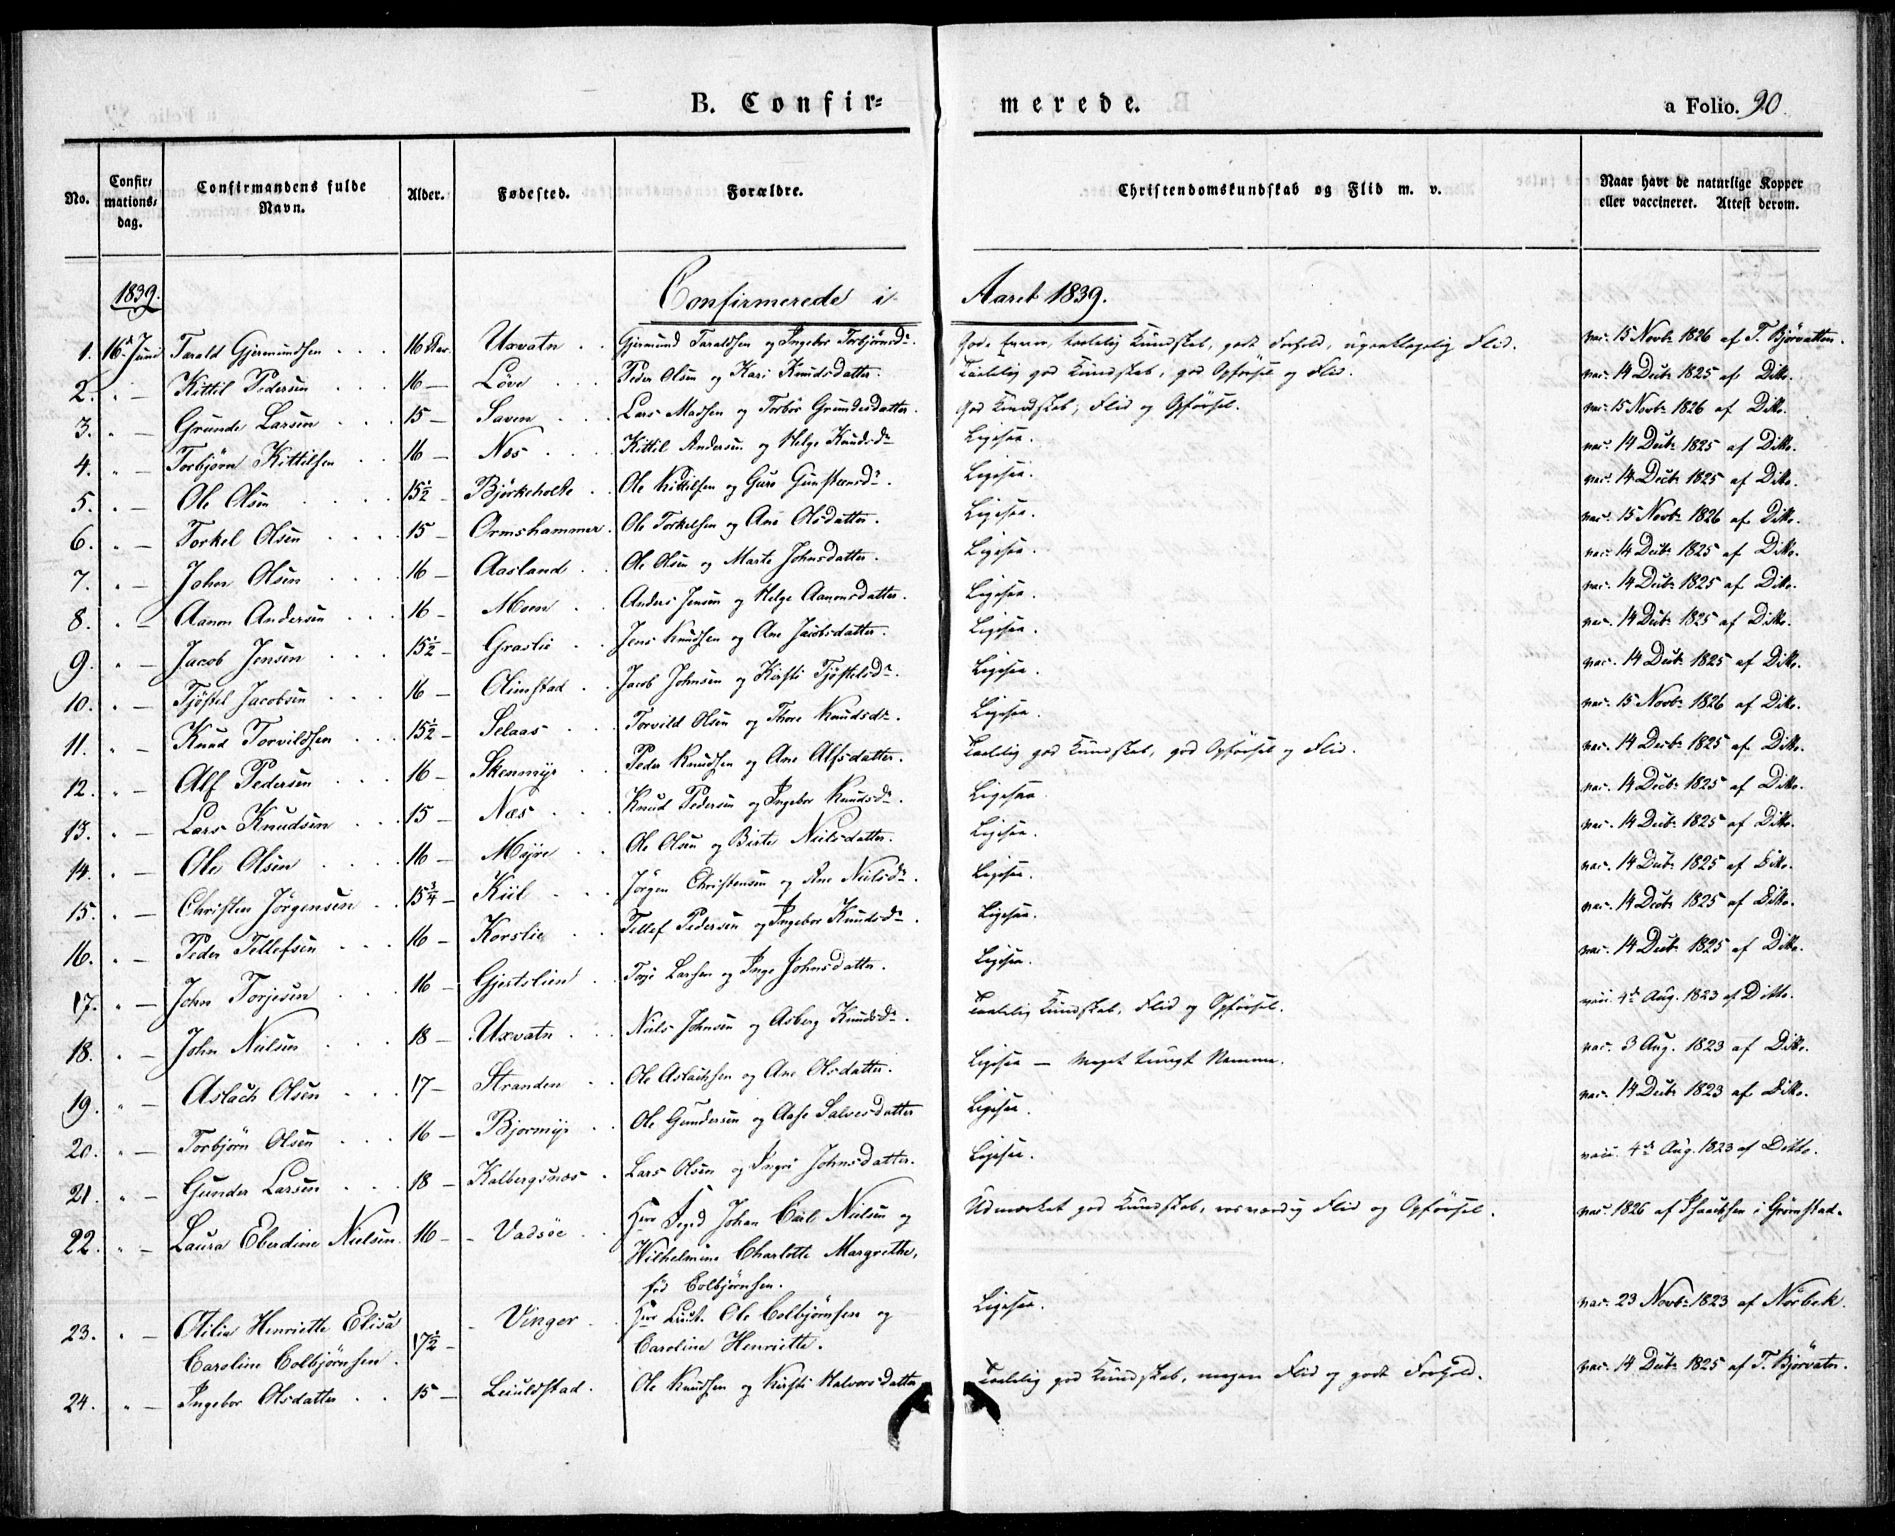 B. Confir= merede. a Folio. 90.
No. Confir=mations=dag. Confirmandens fulde Navn. Alder. Fødested. Forældre. Christendomskundskab og Flid m. v. Naar havt de naturlige Kopper eller vaccineret. Attest derom.
1839. Confirmerede i Aaret 1839.
1. 16d Juni Tarald Gjermundsen 16 Aar. Uxvatn Gjermund Taraldsen og Ingebor Torbjörnsdr. Gode Evner, kundskab, godt Forhold, Flid. vac. 15 Novbr 1826 af T. Bjørvatten.
2. " — Kittil Pedersen 16 — Löve Peder Olsen og Kari Knudsdatter. Taalelig god Kundskab, god Opførsel og Flid. vac. 14 Decbr 1825 af Ditto.
3. " — Grunde Larsen 15 — Saven Lars Madsen og Torbor Grundesdatter. God Kundskab, Flid og Opførsel. vac. 15 Novbr 1826 af Ditto.
4. " — Torbjörn Kittilsen 16 — Næs Kittil Andersen og Helge Knudsdr Ligesaa. vac. 14 Decbr 1825 af Ditto.
5. " — Ole Olsen 15½ — Bjørkeholte Ole Kittilsen og Guro Gunsteensdr. Ligesaa. vac. 14 Decbr 1825 af Ditto.
6. " — Torkel Olsen 15 — Ormshammer Ole Torkelsen og Ane Olsdatter. Ligesaa. vac. 15 Novbr 1826 af Ditto.
7. " — John Olsen 16 — Aasland Ole Olsen og Marte Johnsdatter. Ligesaa. vac. 14 Decbr 1825 af Ditto.
8. " — Aanon Andersen 16 — Moen Anders Jensen og Helge Aanonsdatter. Ligesaa. vac. 14 Decbr 1825 af Ditto.
9. " — Jacob Jensen 15½ — Graslie Jens Knudsen og Ane Jacobsdatter. Ligesaa. vac. 14 Decbr 1825 af Ditto.
10. " — Tjöstel Jacobsen 16 — Olimstad Jacob Johnsen og Kirsti Tjöstelsdr. Ligesaa. vac. 14 Decbr 1825 af Ditto.
11. " — Knud Torvildsen 15½ — Selaas Torvild Olsen og Thore Knudsdr. Ligesaa. vac. 15 Novbr 1826 af Ditto.
12. " — Alf Pedersen 16 — Skenmyr Peder Knudsen og Ane Alfsdatter. Taalelig god Kundskab, god Opførsel og Flid. vac. 14 Decbr 1825 af Ditto.
13. " — Lars Knudsen 15 — Næs Knud Pedersen og Ingebor Knudsdr. Ligesaa. vac. 14 Decbr 1825 af Ditto.
14. " — Ole Olsen 16 — Möjre Ole Olsen og Birte Nielsdatter. Ligesaa. vac. 14 Decbr 1825 af Ditto.
15. " — Christen Jörgensen 15¾ — Kiil Jörgen Christensen og Ane Nielsdr. Ligesaa. vac. 14 Decbr 1825 af Ditto.
16. " — Peder Tellefsen 16 — Korslie Tellef Pedersen og Ingebor Knudsdr. Ligesaa. vac. 14 Decbr 1825 af Ditto.
17. " — John Torjesen 16 — Gjertslien Torje Larsen og Inge Johnsdatter. Ligesaa. vac. 14 Decbr 1825 af Ditto.
18. " — John Nielsen 18 — Uxvatn Niels Johnsen og Asberg Knudsdr. Taalelig Kundskab, Flid og Opførsel. vacc. 4de Aug. 1823 af Ditto.
19. " — Aslach Olsen 17 — Stranden Ole Aslachsen og Ane Olsdatter. Ligesaa — meget tungt Nemme. vac. 3 Aug. 1823 af Ditto.
20. " — Torbjörn Olsen 16 — Bjormyr Ole Gundersen og Aase Salvesdatter Ligesaa. vac. 14 Decbr 1823 af Ditto.
21. " — Gunder Larsen 18 — Kalbergsnæs Lars Olsen og Ingri Johnsdatter. Ligesaa. vacc. 4de Aug. 1823 af Ditto.
22. " — Laura Eberdine Nielsen 16 — Vadsöe Herr Foged Johan Carl Nielsen og Udmærket god Kundskab, rosværdig Flid og Opførsel. vac. 1826 af Isaachsen i Grimstad.
Wilhelmine Charlotte Margrethe,
föd Colbjørnsen.
23. " — Otilia Henriette Elisa 17½ — Vinger Herr Lieut. Ole Colbjørnsen og Ligesaa. vac. 23 Novbr 1823 af Nörbek.
Caroline Colbjørnsen. Caroline Henriette.
24. " — Ingebor Olsdatter 15 — Leiuldstad Ole Knudsen og Kirsti Halvorsdatter Taalelig god Kundskab, megen Flid og godt Forhold. vac. 14 Decbr 1825 af T. Bjørvatn.